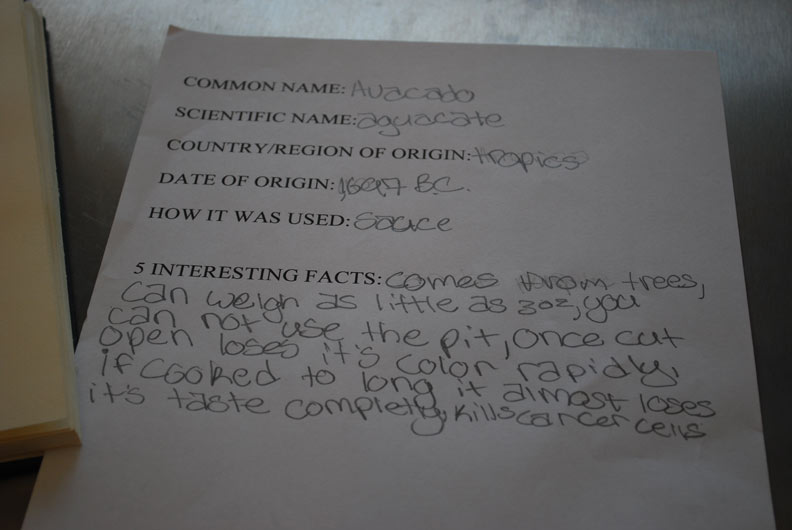 COMMON NAME: Avacado
SCIENTIFIC NAME: aguacate
COUNTRY/REGION OF ORIGIN: tropics
DATE OF ORIGIN: B.C.
HOW IT WAS USED: Sauce
5 INTERESTING FACTS: comes from trees,
can weigh as little as 3oz, you
can not use the pit, once cut
open loses it's color rapidly,
if cooked to long it almost loses
it's taste completly, kills cancer cells